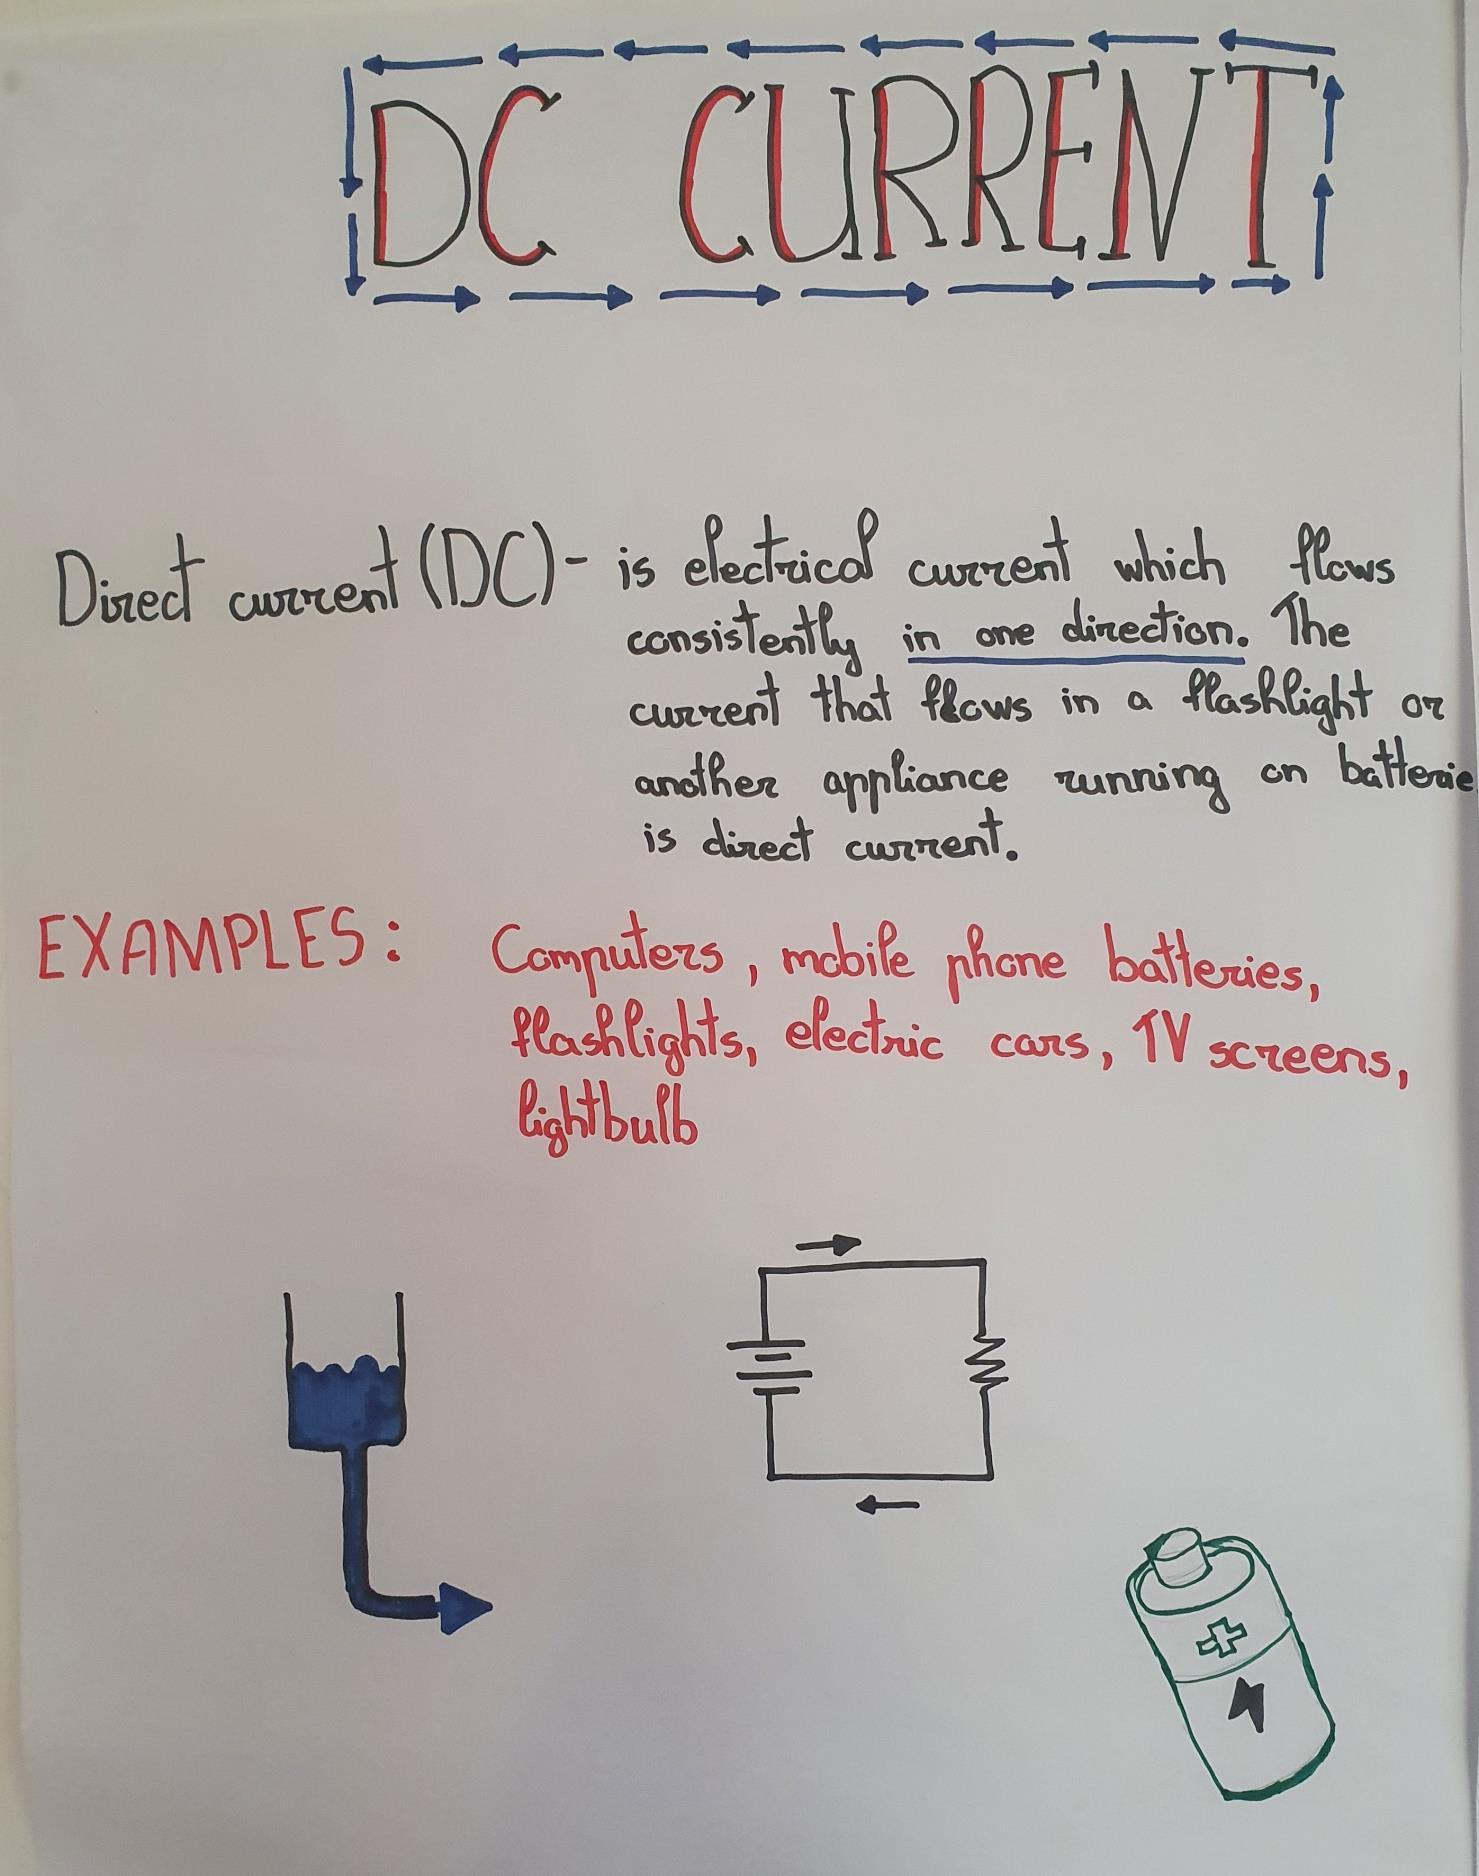 DC CURRENT
Direct current (DC) - is electrical current which flows
consistently in one direction. The
current that flows in a flashlight or
another appliance running on batterie
is direct current.
EXAMPLES: Computers, mobile phone batteries,
flashlights, electric cars, TV screens,
lightbulb